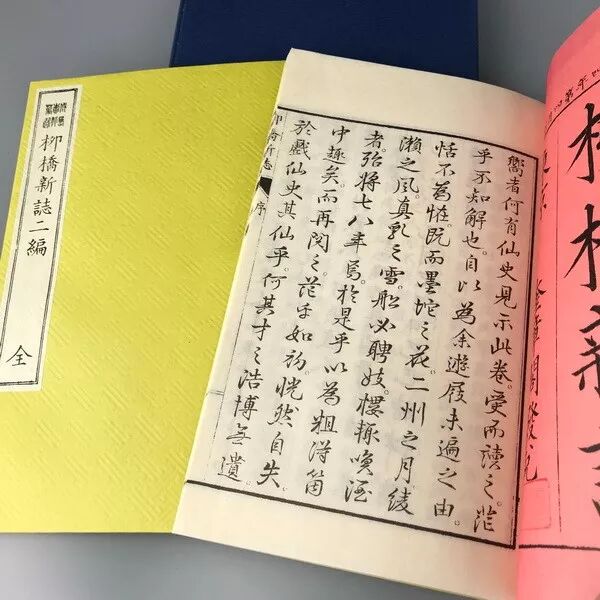 嚮者何有仙史見示此卷。受而讀之。茫
乎不知解也。自以為余遊屐未遍之由。
恬不為恠。既而墨坨之花。二州之月。綾
瀬之風。真乳之雪。船必聘妓。樓輙喚酒
者。殆將七八年焉。於是乎以為粗得箇
中趣矣。而再閱之。茫乎如初。恍然自失。
於戲仙史其仙乎。何其才之浩博無遺。
柳橋新志
序
柳橋新誌二編
全